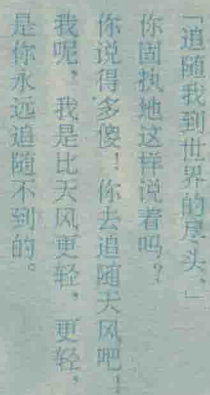 「追随我到世界的尽头，」
你固执地这样说着吗？
你说得多傻！你去追随天风吧！
我呢，我是比天风更轻，更轻，
是你永远追随不到的。